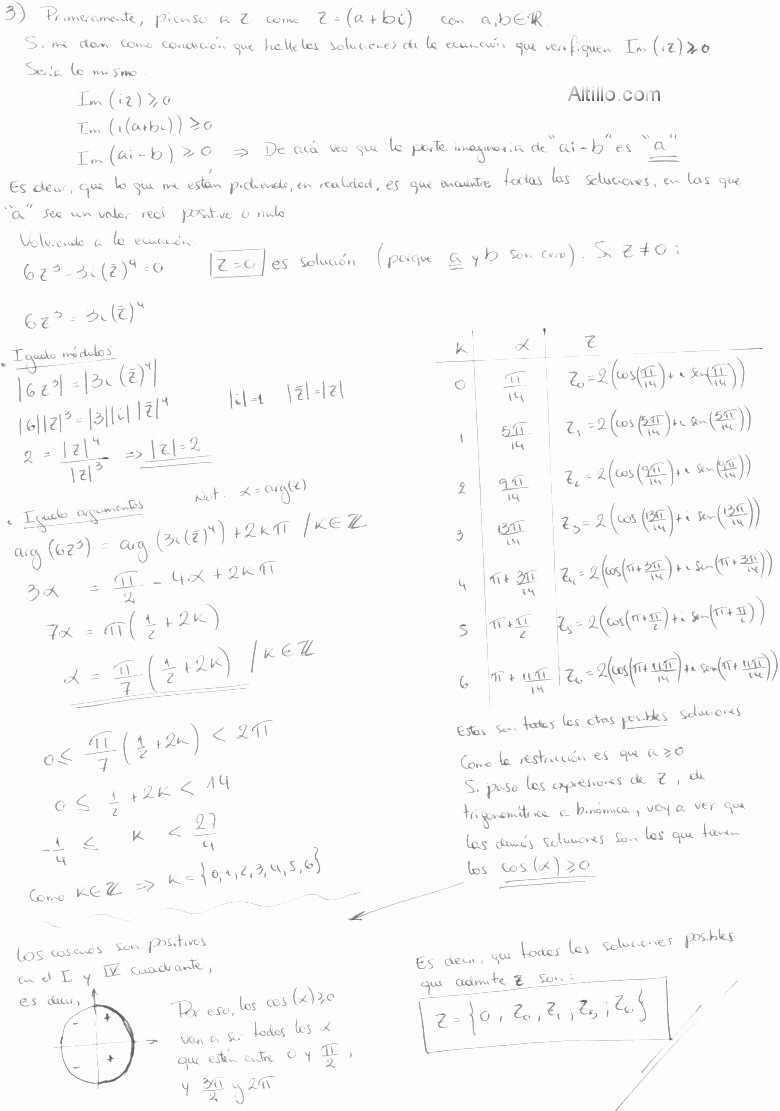 3) Primeramente, pienso a z como z = (a + bi) con a,b∈ℝ.
Si me dan como condición que halle las soluciones de la ecuación que verifiquen Im(iz) ≥ 0
Sería lo mismo:
Altillo.com
Im(iz) ≥ 0
Im(i(a+bi)) ≥ 0
Im(ai - b) ≥ 0 ⇒ De acá veo que la parte imaginaria de "ai - b" es "a"
Es decir, que lo que me están pidiendo, en realidad, es que encuentre todas las soluciones, en las que
"a" sea un valor real positivo o nulo
Volviendo a la ecuación
6z³ - 3i(z̄)⁴ = 0 |z = 0| es solución (porque a y b son cero). Si z ≠ 0:
6z³ = 3i(z̄)⁴
• Igualo módulos
|6z³| = |3i(z̄)⁴|
|6||z|³ = |3||i||z̄|⁴ |i|=1 |z̄|=|z|
2 = |z|⁴/|z|³ ⇒ |z| = 2
• Igualo argumentos Not. α = arg(z)
arg(6z³) = arg(3i(z̄)⁴) + 2kπ / k∈ℤ
3α = π/2 - 4α + 2kπ
7α = π(1/2 + 2k)
α = π/7 (1/2 + 2k) / k∈ℤ
0 ≤ π/7 (1/2 + 2k) < 2π
0 ≤ 1/2 + 2k < 14
-1/4 ≤ k < 27/4
Como k∈ℤ ⇒ k = {0,1,2,3,4,5,6}
k α z
0 π/14 z₀ = 2(cos(π/14) + i sen(π/14))
1 5π/14 z₁ = 2(cos(5π/14) + i sen(5π/14))
2 9π/14 z₂ = 2(cos(9π/14) + i sen(9π/14))
3 13π/14 z₃ = 2(cos(13π/14) + i sen(13π/14))
4 π + 3π/14 z₄ = 2(cos(π + 3π/14) + i sen(π + 3π/14))
5 π + π/2 z₅ = 2(cos(π + π/2) + i sen(π + π/2))
6 π + 11π/14 z₆ = 2(cos(π + 11π/14) + i sen(π + 11π/14))
Estas son todas las otras posibles soluciones
Como la restricción es que a ≥ 0
Si paso las expresiones de z, de
trigonométrica a binómica, voy a ver que
las demás soluciones son las que tienen
los cos(α) ≥ 0
Los cosenos son positivos
en el I y IV cuadrante,
es decir,
- +
- +
Por eso, los cos(α) ≥ 0
van a ser todos los α
que estén entre 0 y π/2,
y 3π/2 y 2π
Es decir, que todas las soluciones posibles
que admite z son:
z = {0, z₀, z₁, z₅, z₆}